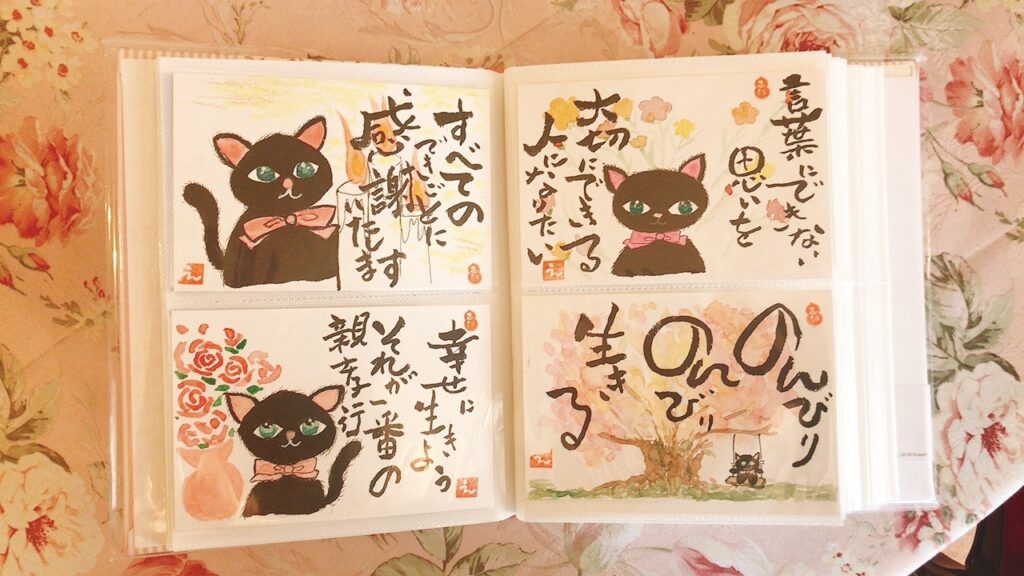 すべての
できごとに
感謝
いたします
言葉にできない
思いを
大切にできる
人になりたい
幸せに
生きよう
それが一番の
親孝行
のんびり
のんびり
生きる
え
え
え
え